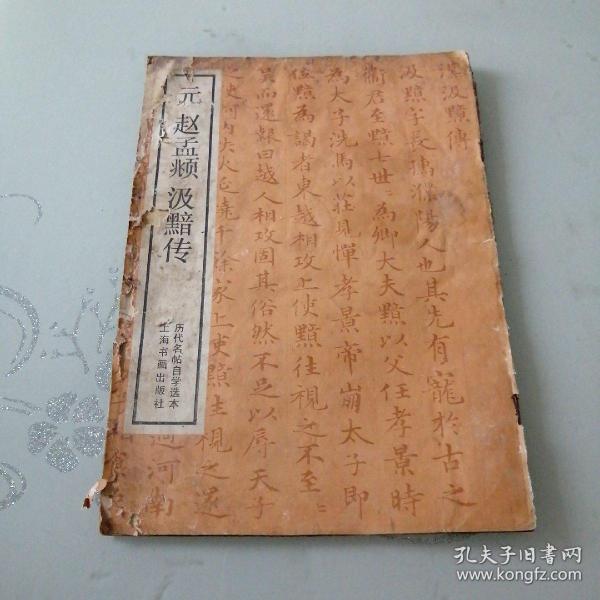 元 赵孟頫 汲黯传
历代名帖自学选本
上海书画出版社
汉汲黯傳
汲黯字長孺濮陽人也其先有寵於古之
衞君至黯七世〻為卿大夫黯以父任孝景時
為太子洗馬以莊見憚孝景帝崩太子即
位黯為謁者東越相攻上使黯往視之不至〻
吳而還報曰越人相攻固其俗然不足以辱天子
之使河内失火延燒千餘家上使黯往視之還
過河南
孔夫子旧书网
www.kongfz.com